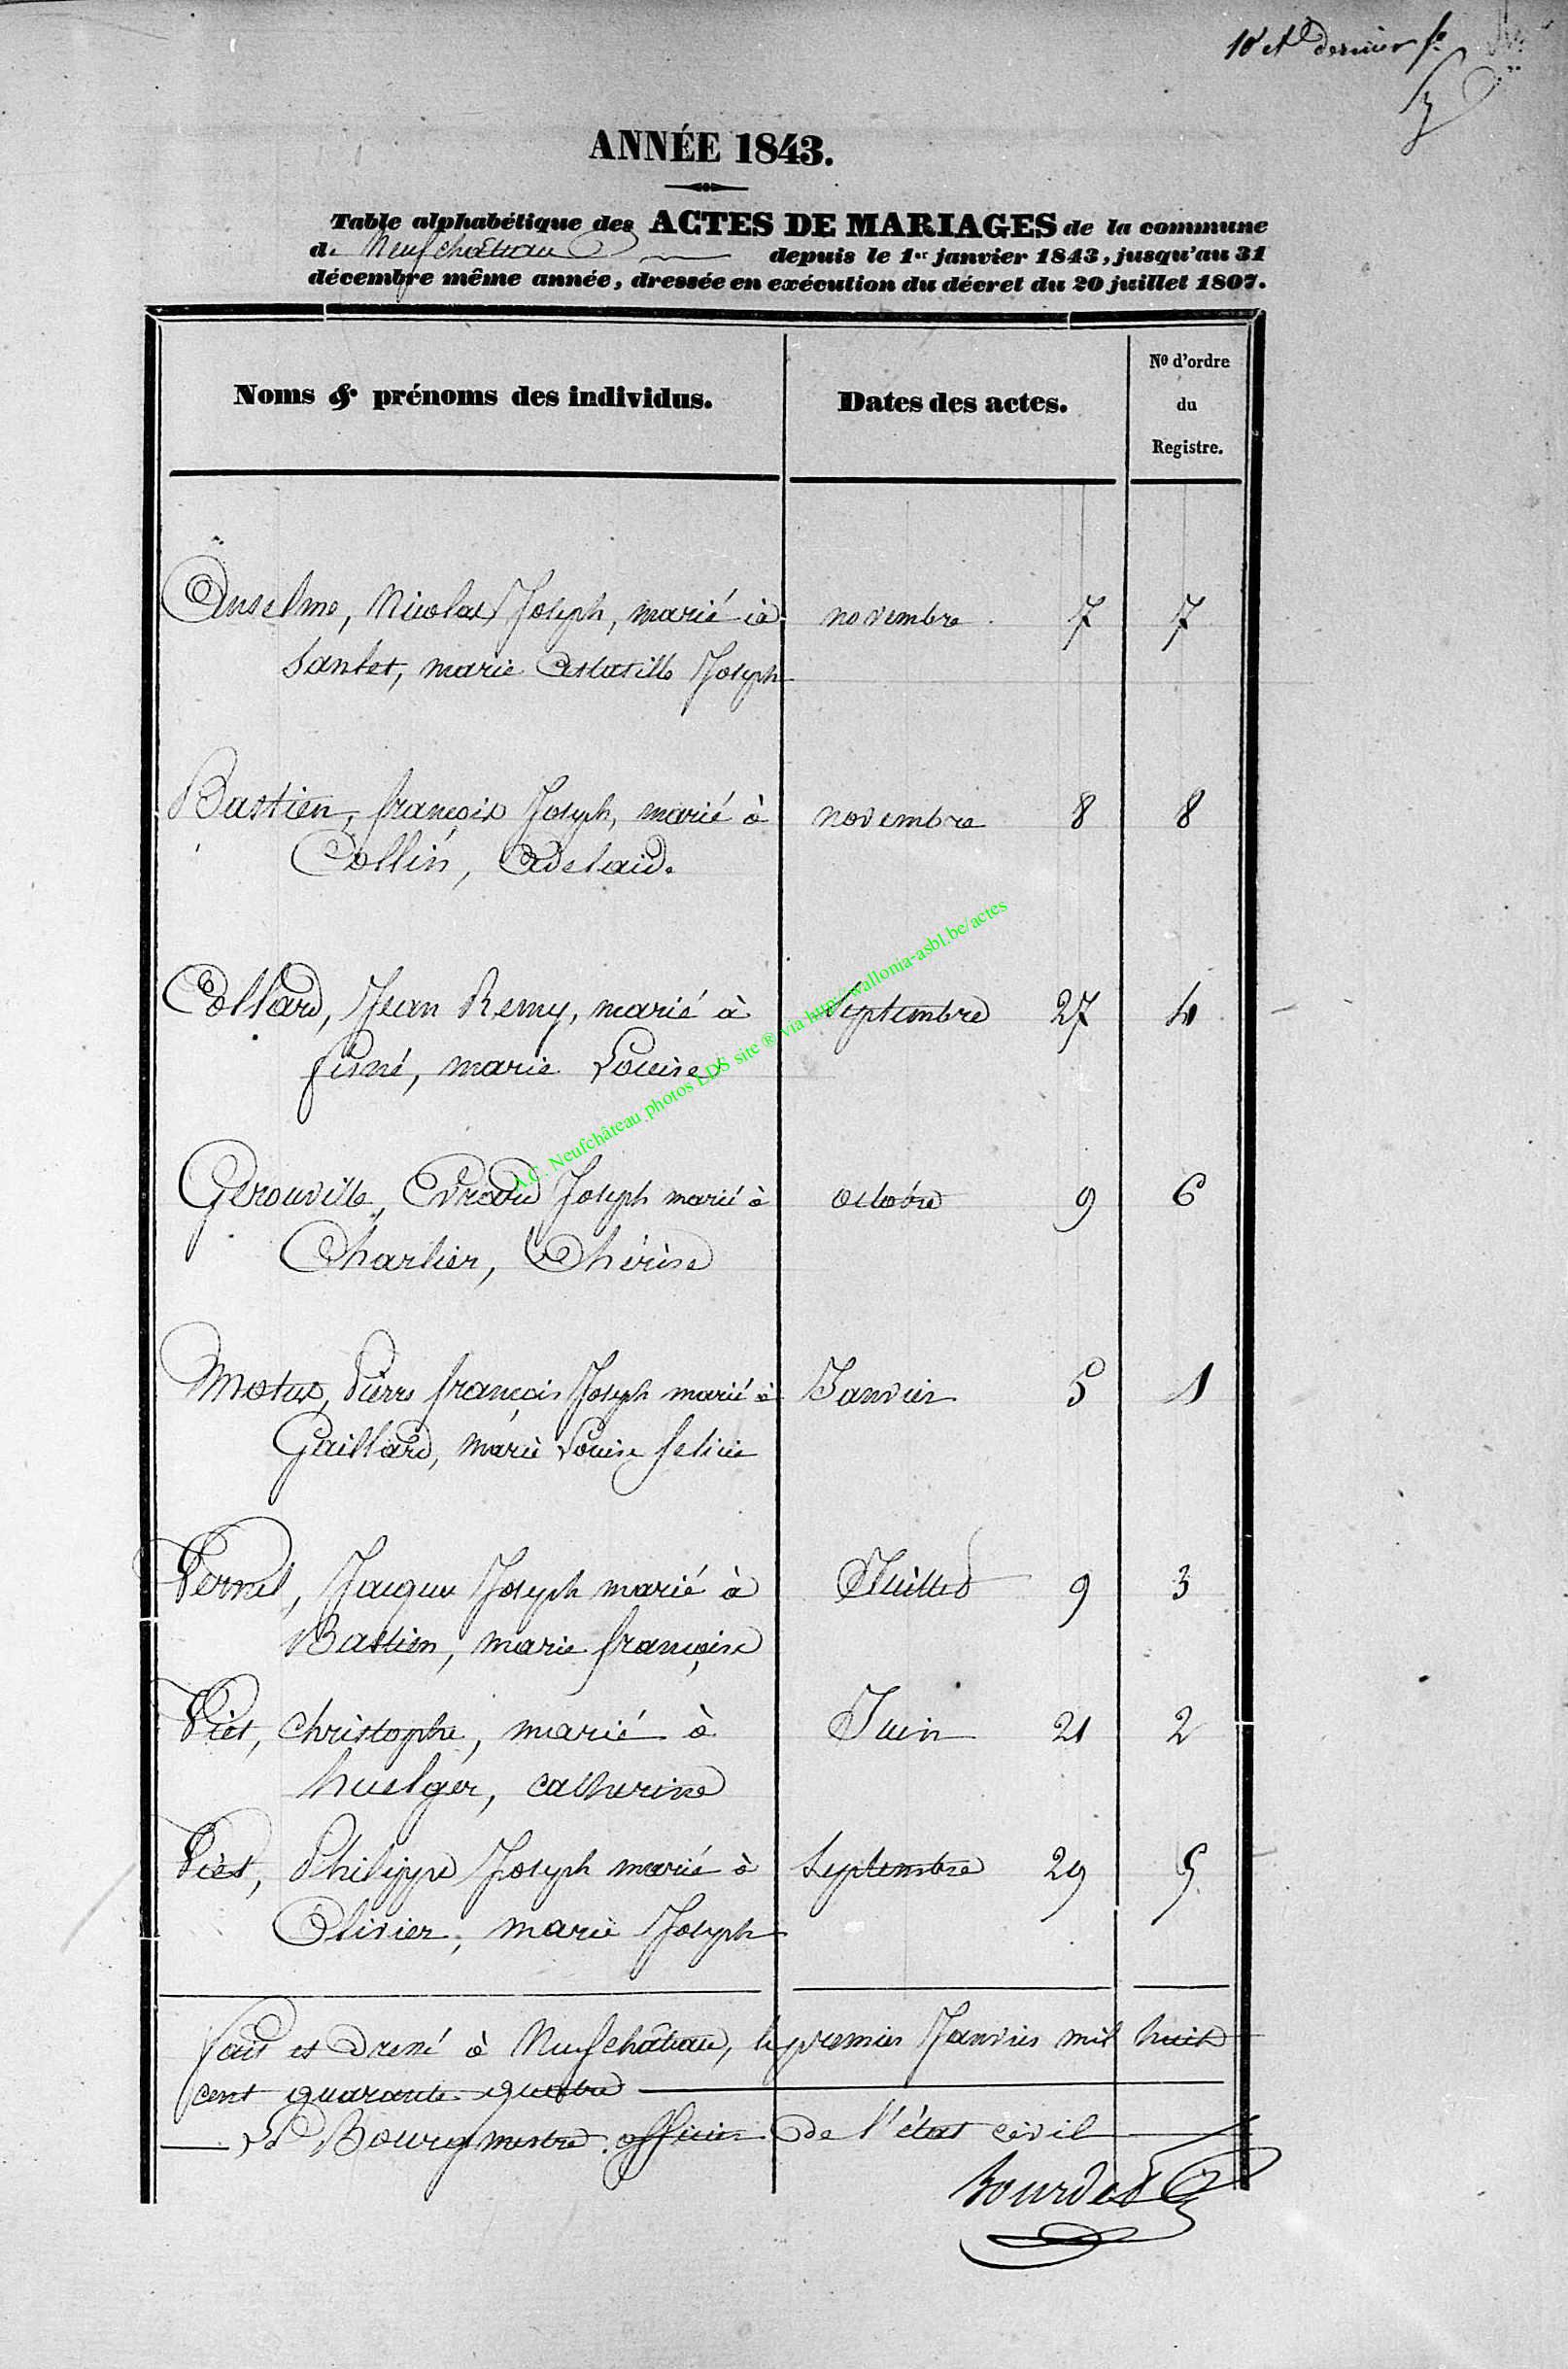 10 et dernier fo.
ANNÉE 1843.
Table alphabétique des ACTES DE MARIAGES de la commune
de Neufchateau depuis le 1er janvier 1843, jusqu'au 31
décembre même année, dressée en exécution du décret du 20 juillet 1807.
Noms & prénoms des individus. Dates des actes. No d'ordre
du
Registre.
Anselme, Nicolas Joseph, marié à novembre 7 7
marie Joseph
Bastien, françois Joseph, marié à novembre 8 8
Collin, Adelaide
Collard, Jean Remy, marié à Septembre 27 4
marie Louise
Gerouville, Evrard Joseph marié à octobre 9 6
Charlier, Thérèse
Motus, Pierre françois Joseph marié à Janvier 5 1
Gaillard, marie Louise felicie
Pernel, Jacques Joseph marié à Juillet 9 3
Bastien, marie françoise
Piet, christophe, marié à Juin 21 2
huelger, catherine
Piet, Philippe Joseph marié à Septembre 29 5
Olivier, marie Joseph
fait et dressé à Neufchâteau, le premier Janvier mil huit
cent quarante quatre
Le Bourgmestre officier de l'état civil
Bourdet
A.C. Neufchâteau photos LDS site ® via http://wallonia-asbl.be/actes